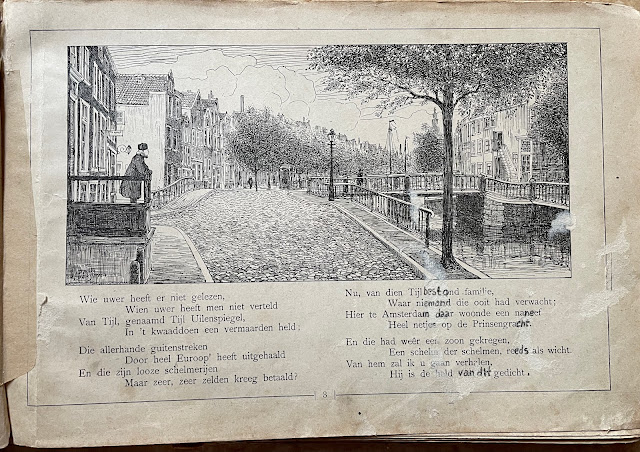 Wie uwer heeft er niet gelezen,
Wien uwer heeft men niet verteld
Van Tijl, genaamd Tijl Uilenspiegel,
In 't kwaaddoen een vermaarden held;
Die allerhande guitenstreken
Door heel Europ' heeft uitgehaald
En die zijn looze schelmerijen
Maar zeer, zeer zelden kreeg betaald?
Nu, van dien Tijl bestond familie,
Waar niemand die ooit had verwacht;
Hier te Amsterdam daar woonde een naneef
Heel netjes op de Prinsengracht.
En die had weêr een zoon gekregen,
Een schelm der schelmen, reeds als wicht.
Van hem zal ik u gaan verhalen,
Hij is de held van dit gedicht.
3